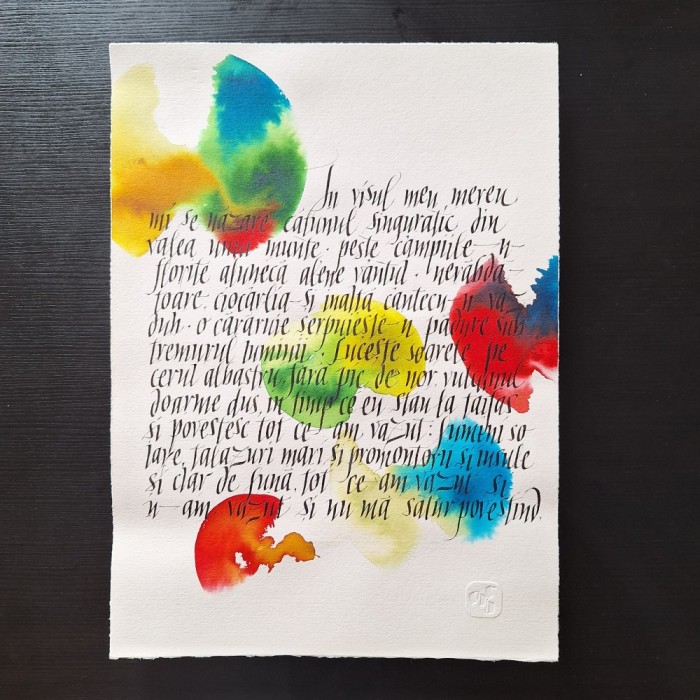 In visul meu mereu
mi se năzare cătunul singuratic din
valea unui munte · peste câmpiile-n-
florite alunecă alene vântul · nerăbdă-
toare, ciocârlia-și înalță cântecu-n văz-
duh · o cărăruie șerpuiește-n pădure sub
tremurul luminii · Lucește soarele pe
cerul albastru, fără pic de nor, vulcanul
doarme dus, în timp ce eu stau la taifas
și povestesc tot ce-am văzut: Lumini so-
lare, talazuri mari și promontorii și insule
și clar de lună, tot ce-am văzut și
n-am văzut și nu mă satur povestind.